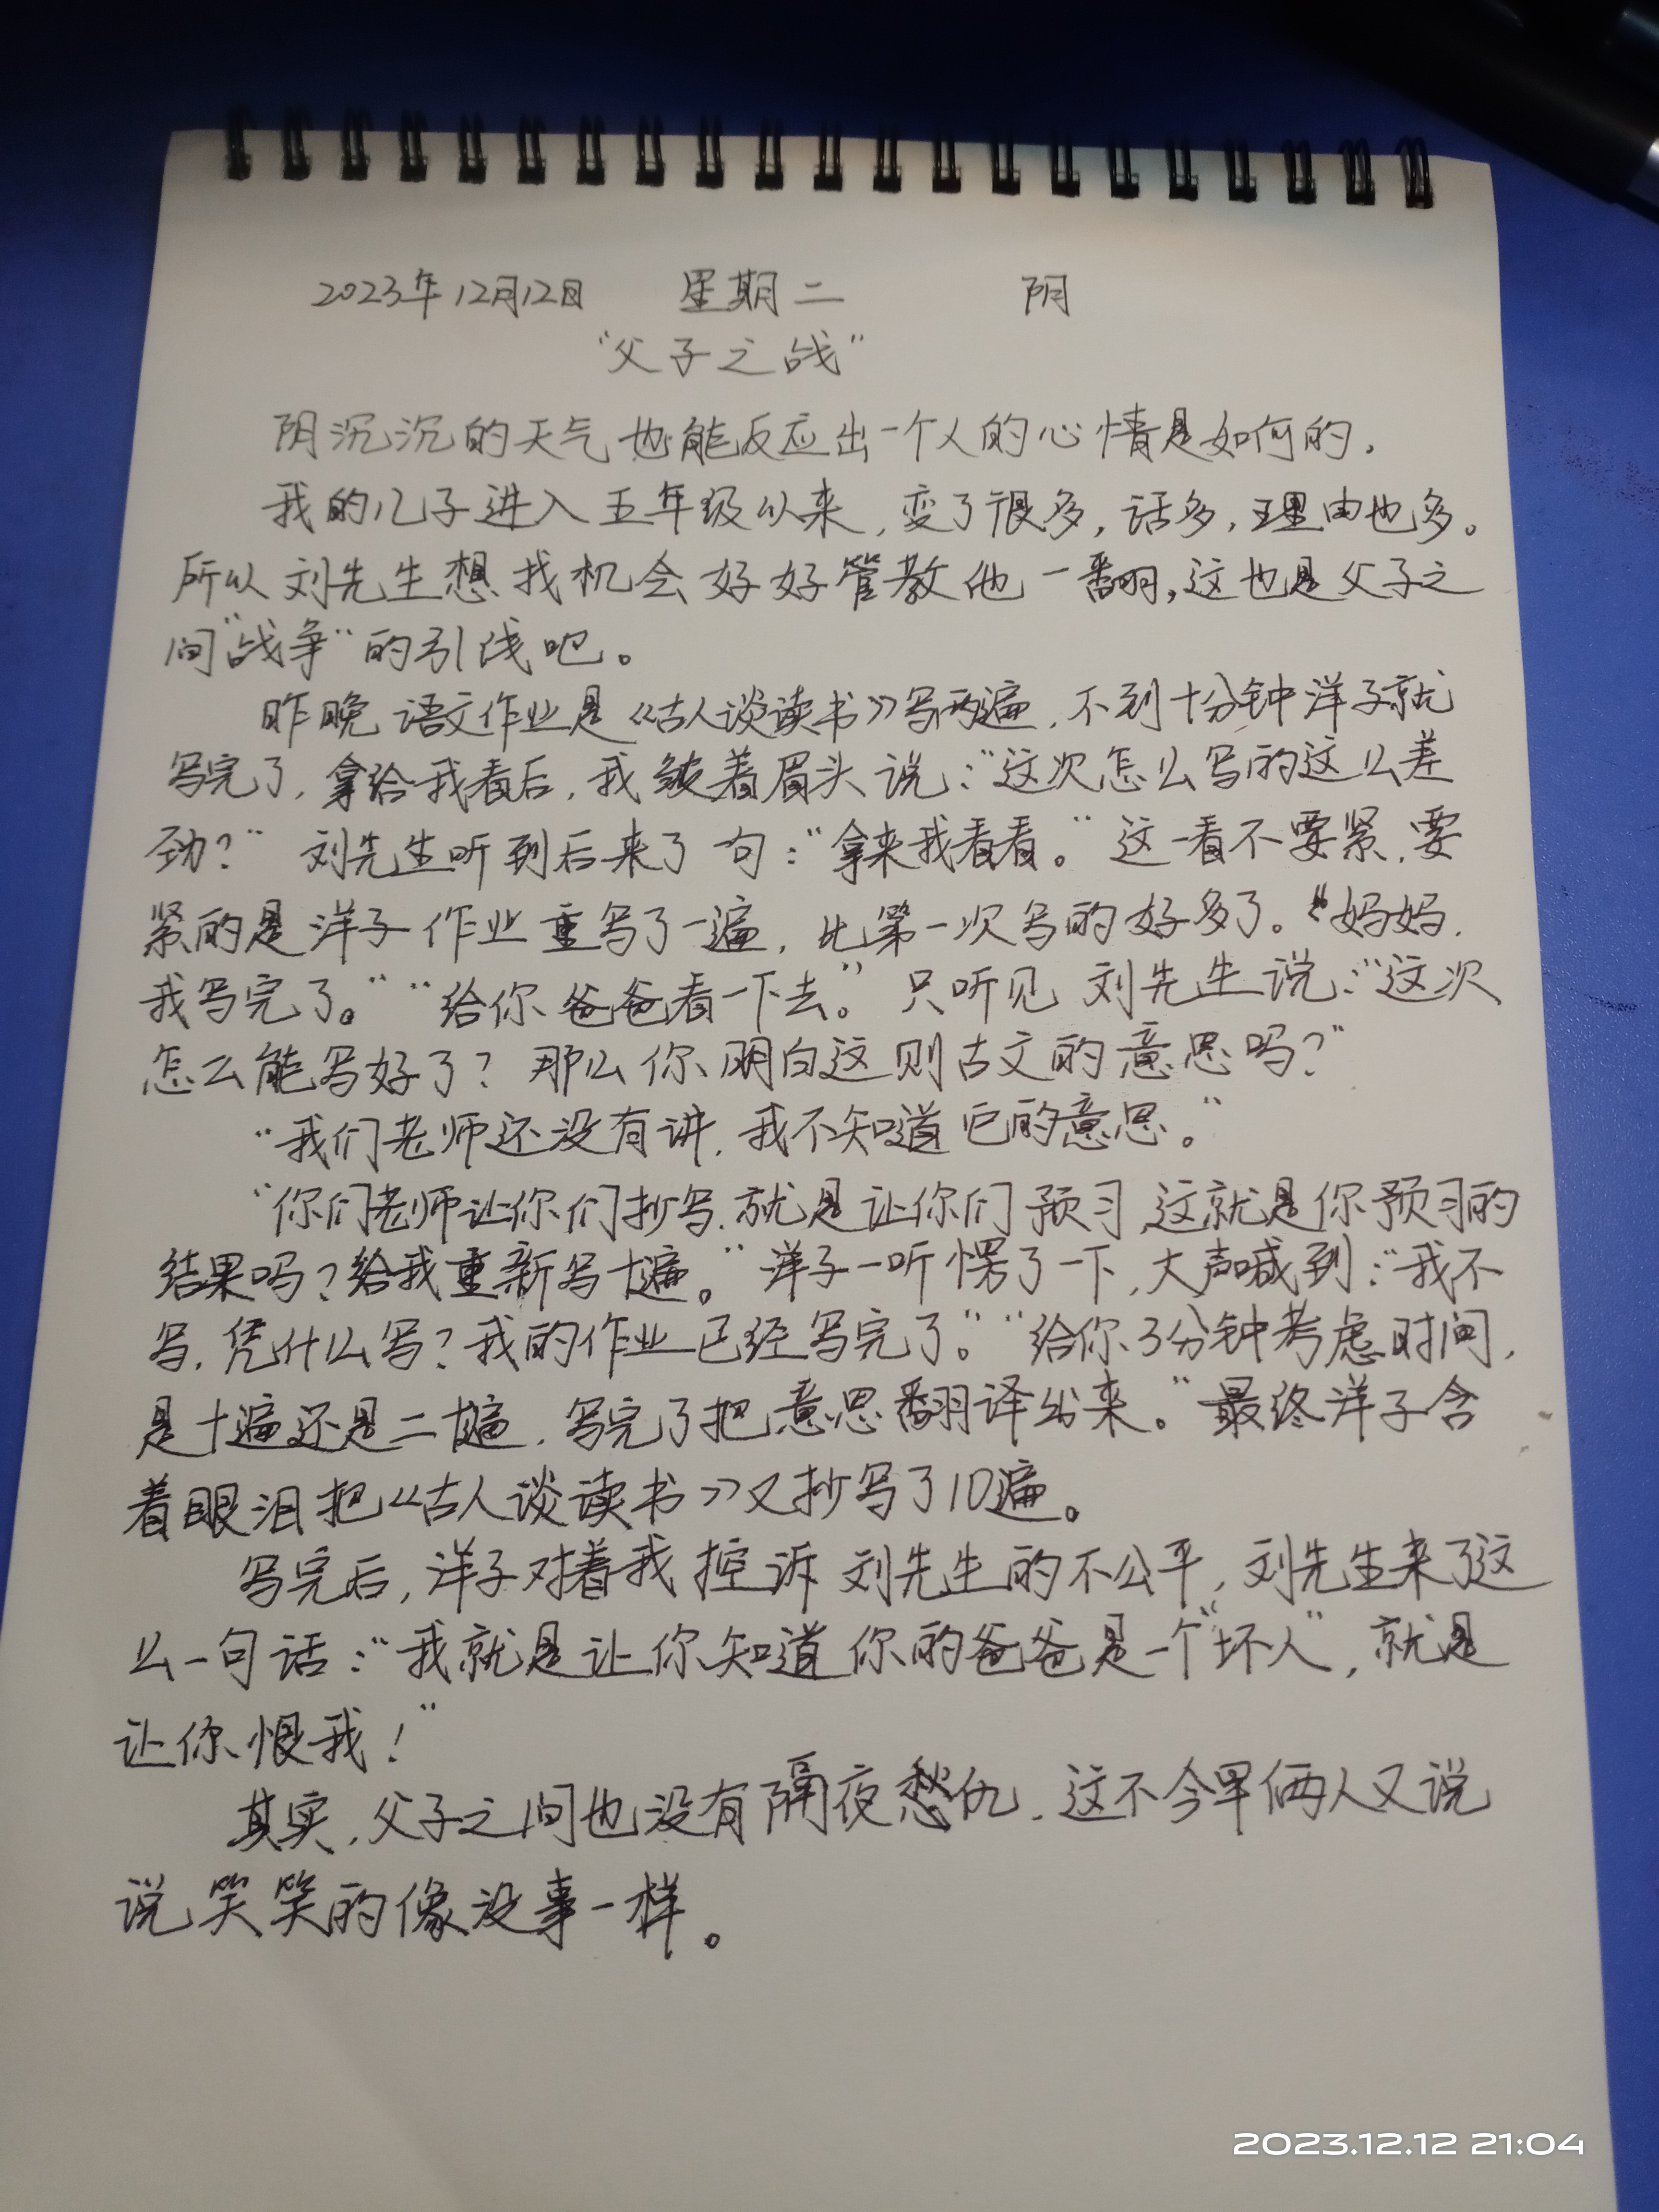 2023年12月12日 星期二 阴
“父子之战”
阴沉沉的天气也能反应出一个人的心情是如何的.
我的儿子进入五年级以来,变了很多,话多,理由也多。
所以刘先生想找机会好好管教他一翻,这也是父子之
间“战争”的引线吧。
昨晚语文作业是《古人谈读书》写两遍,不到十分钟洋子就
写完了,拿给我看后,我皱着眉头说:“这次怎么写的这么差
劲?”刘先生听到后来了句:“拿来我看看。”这一看不要紧,要
紧的是洋子作业重写了一遍,比第一次写的好多了。“妈妈,
我写完了。”“给你爸爸看一下去。”只听见刘先生说:“这次
怎么能写好了?那么你明白这则古文的意思吗?”
“我们老师还没有讲,我不知道它的意思。”
“你们老师让你们抄写,就是让你们预习,这就是你预习的
结果吗?给我重新写十遍。”洋子一听愣了一下,大声喊到:“我不
写,凭什么写?我的作业已经写完了。”“给你3分钟考虑时间,
是十遍还是二十遍,写完了把意思翻译出来。”最终洋子含
着眼泪把《古人谈读书》又抄写了10遍。
写完后,洋子对着我控诉刘先生的不公平,刘先生来了这
么一句话:“我就是让你知道你的爸爸是一个“坏人”,就是
让你恨我!”
其实,父子之间也没有隔夜愁仇,这不今早俩人又说
说笑笑的像没事一样。
2023.12.12 21:04